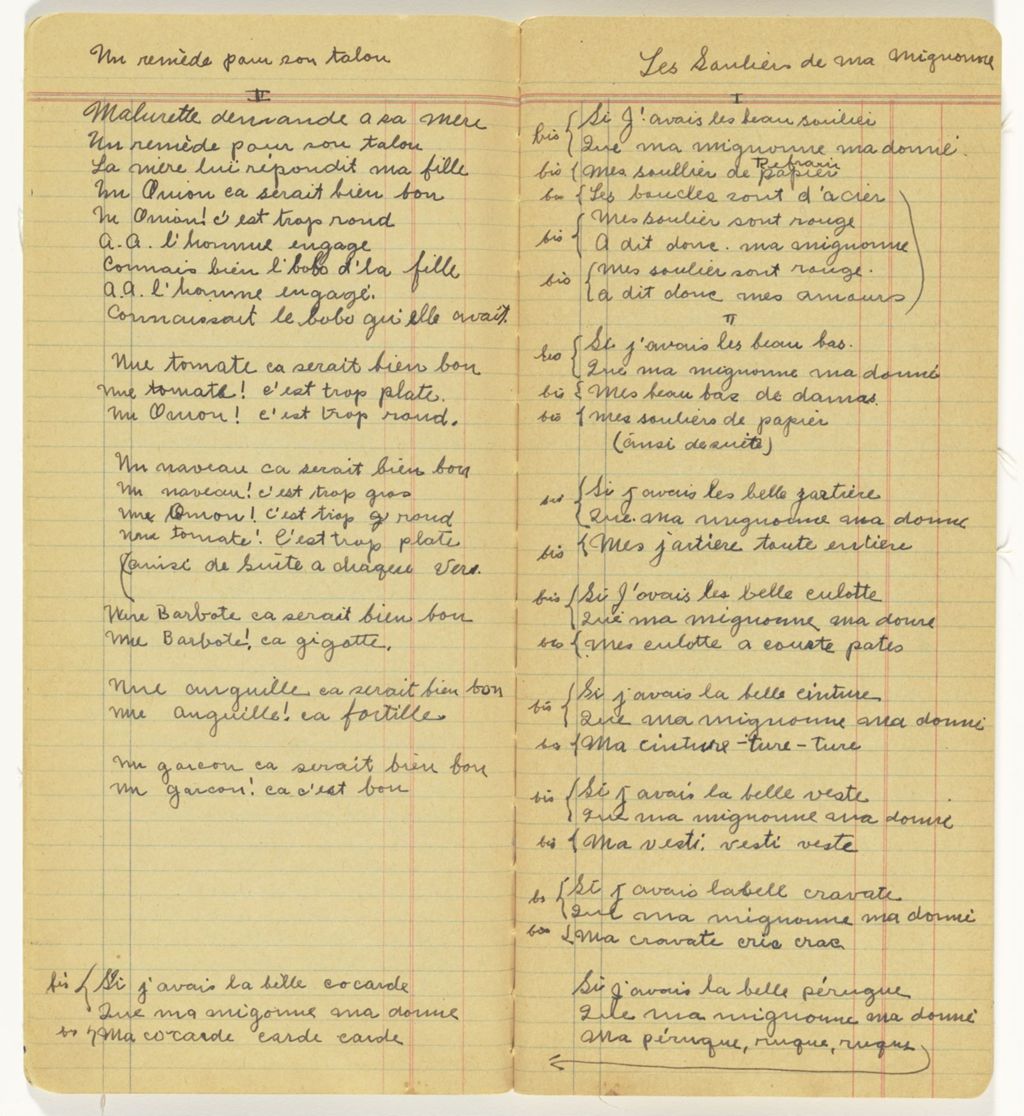 Un remède pour son talon
II
Malurette demande a sa mère
Un remède pour son talon
La mère lui répondit ma fille
Un Onion ca serait bien bon
Un Onion! c'est trop rond
A. A. l'homme engagé
Connais bien l'bobo d'la fille
A.A. l'homme engagé.
Connaissait le bobo qu'elle avait.
Une tomate ca serait bien bon
Une tomate! c'est trop plate.
Un Onion! c'est trop rond.
Un naveau ca serait bien bon
Un naveau! c'est trop gros
Une Onion! C'est trop g rond
Une tomate! C'est trop plate
(ainsi de suite a chaque vers.
Une Barbote ca serait bien bon
Une Barbote! ca gigotte.
Une anguille ca serait bien bon
Une anguille! ca fortille
Un garcon ca serait bien bon
Un garcon! ca c'est bon
bis { Si j'avais la belle cocarde
Que ma migonne ma donne
bs { Ma cocarde carde carde
Les Souliers de ma mignonne
I
bis { Si J'avais les beau soulier
Que ma mignonne ma donné.
bis { Mes soullier de papier
Refrain
bis { Les boucles sont d'acier
bis { Mes soulier sont rouge
A dit donc. ma mignonne
bis { Mes soulier sont rouge.
A dit donc mes amours
II
bis { Si j'avais les beau bas.
Que ma mignonne ma donné
bis { Mes beau bas de damas.
bis { Mes souliers de papier
(ainsi desuite)
bis { Si j'avais les belle jartière
Que ma mignonne ma donne
bis { Mes jartière toute entière
bis { Si J'avais les belle culotte
Que ma mignonne ma donne
bis { Mes culotte a courte pates
bis { Si j'avais la belle cinture
Que ma mignonne ma donné
bs { Ma cinture-ture-ture
bis { Si j'avais la belle veste
Que ma mignonne ma donné
bis { Ma vesti. vesti veste
bs { Si j'avais labell cravate
Que ma mignonne ma donné
bis { Ma cravate cric crac
Si j'avais la belle péruque
Que ma mignonne ma donné
Ma péruque, ruque, ruque